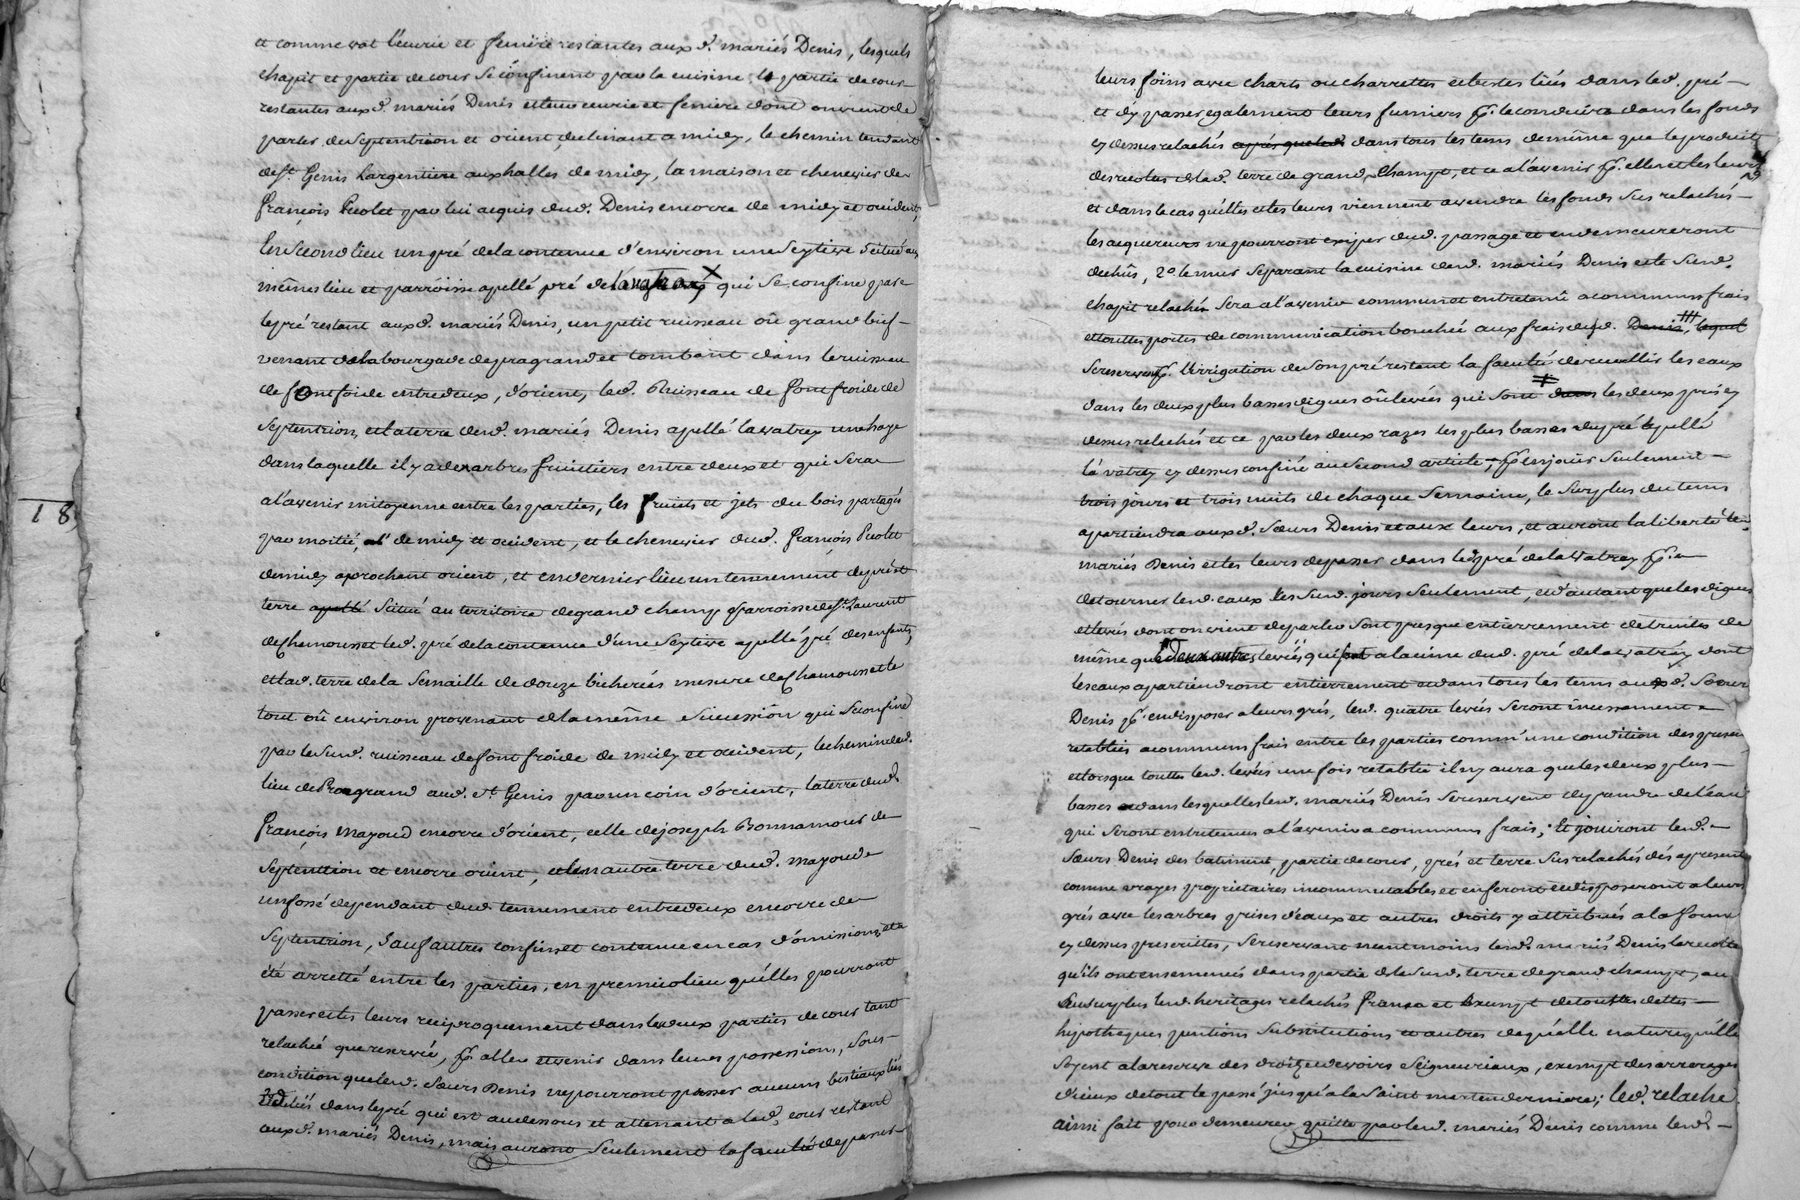 et comme est l'écurie et feniere restantes aux d. mariés Denis, lesquels
chapit et partie de cour se confinent par la cuisine, la partie de cour
restantes aux d. mariés Denis et leur écurie et feniere dont on vient de
parler de septentrion et orient, declinant a midy, le chemin tendant
de St. Genis Largentiere aux halles de midy, la maison et chenevier de
françois Pivolet par lui acquis dud. Denis encorre de midy et occident,
En second lieu un pré de la contenue d'environ une seytive scitué aux
mêmes lieu et parroisse apellé pré de qui se confine par
le pré restant aux d. mariés Denis, un petit ruisseau où grand bief
venant de la bourgade de pragrand et tombant dans le ruisseau
de font foide entredeux, d'orient, led. Ruisseau de font froide de
septentrion, et la terre desd. mariés Denis apellé la vatrey une haye
dans laquelle il y a des arbres fruitiers entre deux et qui sera
a l'avenir mitoyenne entre les parties, les fruits et jets du bois partagés
par moitié, de midy et occident, et le chenevier dud. françois
de midy aprochant orient, et en dernier lieu un tennement de pré et
terre apellé scitué au territoire de grand champ parroisse de St. Laurent
de Chamousset led. pré de la contenue d'une seytive apellé pré des enfants,
et lad. terre de la semaille de douze bicherées mesure de Chamousset le
tout où environ provenant de la même sucession qui se confine
par le sud. ruisseau de font froide de midy et occident, le chemin dud.
lieu de Pragrand aud. St Genis par un coin d'orient, la terre dud.
françois mayoud encorre d'orient, celle de joseph Bonnamour de
septentrion et encorre orient, et une autre terre dud. mayoud
un fossé dependant dud. tennement entredeux encorre de
septentrion, sauf autres confins et contenue en cas d'omissions, et a
été arretté entre les parties, en premier lieu qu'elles pourront
passer et les leurs reciproquement dans les deux parties de cour tant
relachée que reservée, pr. aller et venir dans leurs possessions, sous
condition que lesd. sœurs Denis ne pourront passer aucuns bestiaux liés
dans le pré qui est au dessous et attenant a lad. cour restant
aux d. mariés Denis, mais auront seulement la faculté de passer
leurs foins avec charts ou charrettes et bestes liées dans led. pré
et d'y passer egalement leurs fumiers pr. le conduire dans les fonds
cy dessus relachés après que led. dans tous les tems de même que le produit
des recoltes de lad. terre de grand Champt, et ce a l'avenir pr. elles et les leurs
et dans le cas qu'elles et les leurs viennent a vendre les fonds sus relachés
les acquereurs ne pourront exiger dud. passage et en demeureront
dechus, 2o. le mur separant la cuisine desd. mariés Denis et le susd.
chapit relaché sera a l'avenir commun et entretenu a commun frais
et touttes portes de communication bouchée aux frais desd. Denis, lequel
se reservent pr. l'irrigation de son pré restant la faculté de recueillir les eaux
dans les deux plus basses digues où levées qui sont dans les deux prés cy
dessus relachés et ce par les deux razes les plus basses du pré apellé
la vatrey cy dessus confiné au second article, pr. en jouir seulement
trois jours et trois nuits de chaque semaine, le surplus du tems
apartiendra aux d. sœurs Denis et aux leurs, et auront la liberté lesd.
mariés Denis et les leurs de passer dans led. pré de la Vatrey pr. a
detourner lesd. eaux les susd. jours seulement, et d'autant que les digues
et levées dont on vient de parler sont presque entierrement detruites de
même que deux autres levées qui sont a la cime dud. pré de la vatrey dont
les eaux apartiendront entierrement et dans tous les tems aux d. sœurs
Denis pr. en disposer a leurs grés, lesd. quatre levées seront incessament
retablies a commun frais entre les parties comm'une condition des presentes
et lorsque touttes lesd. levées une fois retablie il n'y aura que les deux plus
basses dans lesquelles lesd. mariés Denis se reservent de prendre de l'eau
qui seront entretenues a l'avenir a communs frais; Et jouiront lesd.
sœurs Denis des batiment, partie de cour, prés et terre sus relachés dés apresent
comme vrayes proprietaires incommutables et en feront et disposeront a leurs
grés avec les arbres prises d'eaux et autres droits y attribués a la forme
cy dessus prescrittes, se reservant neantmoins lesd. mariés Denis la recolte
qu'ils ont ensemencés dans partie de la susd. terre de grand champt, au
surplus lesd. heritages relachés francs et exempt de touttes dettes
hipotheques pentions substitutions et autres de qu'elle nature qu'elle
soyent a la reserve des droits et devoirs seigneuriaux, exempt des arrerages
d'iceux de tout le passé jusqu'a la saint martin derniere; led. relache
ainsi fait pour demeurer quitte par lesd. mariés Denis comme lesd.
18